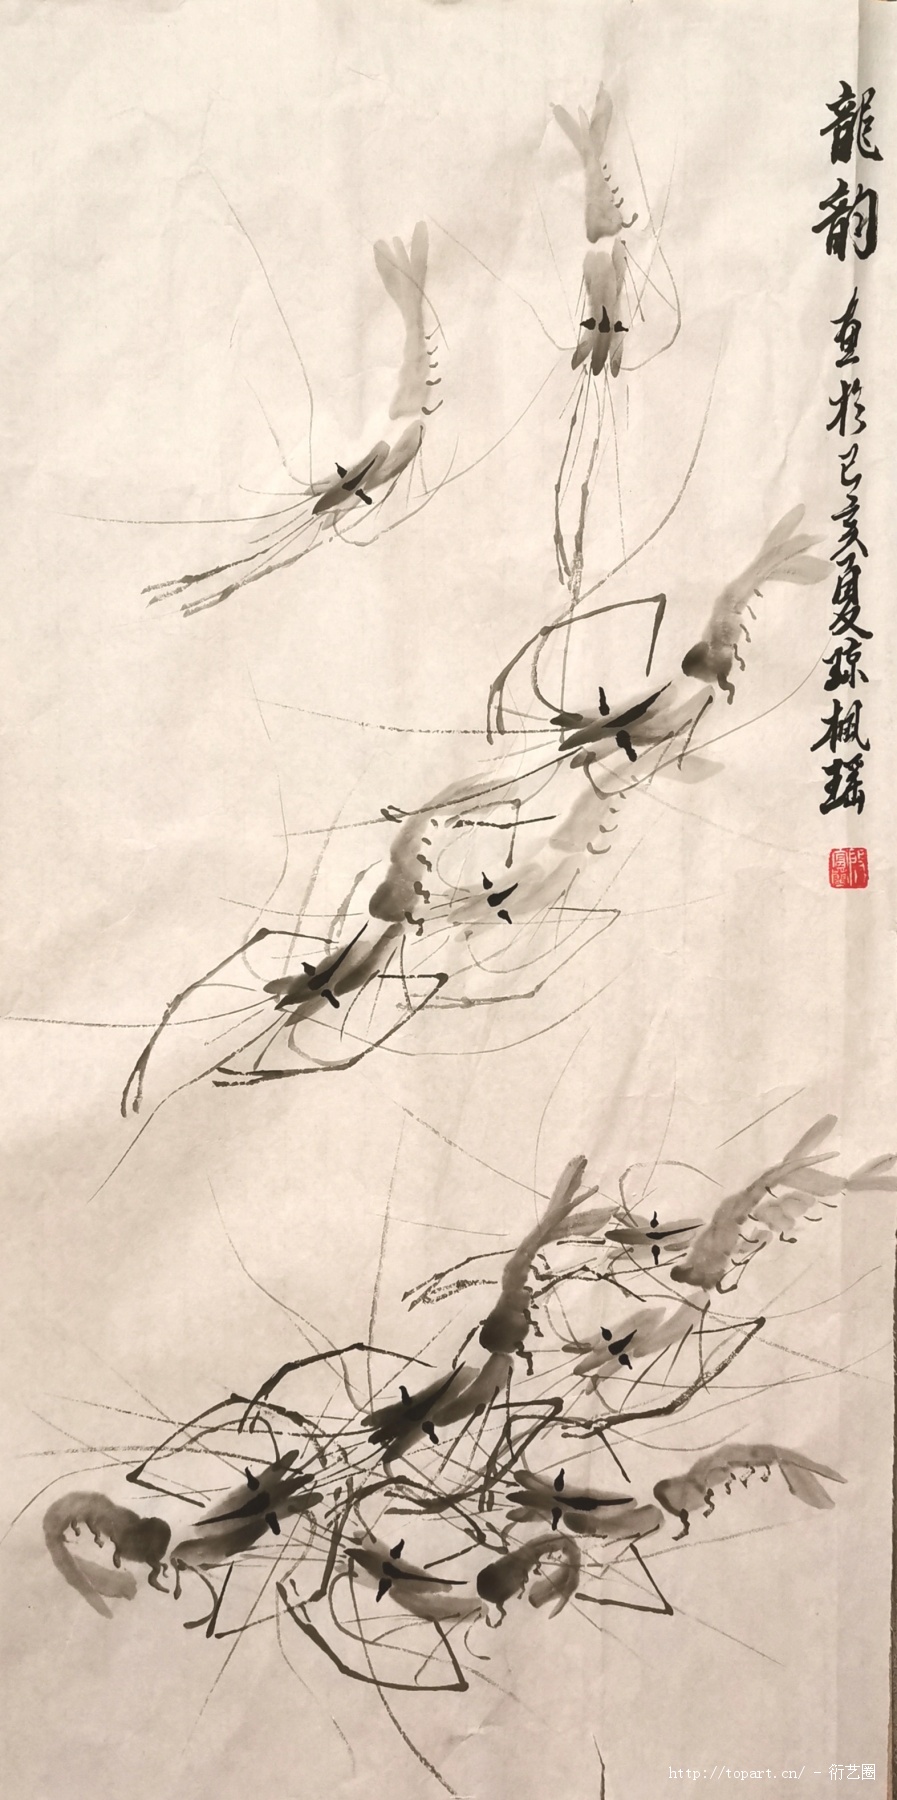 龍韵
画於己亥夏琼枫瑶
http://topart.cn/ - 衍艺圈